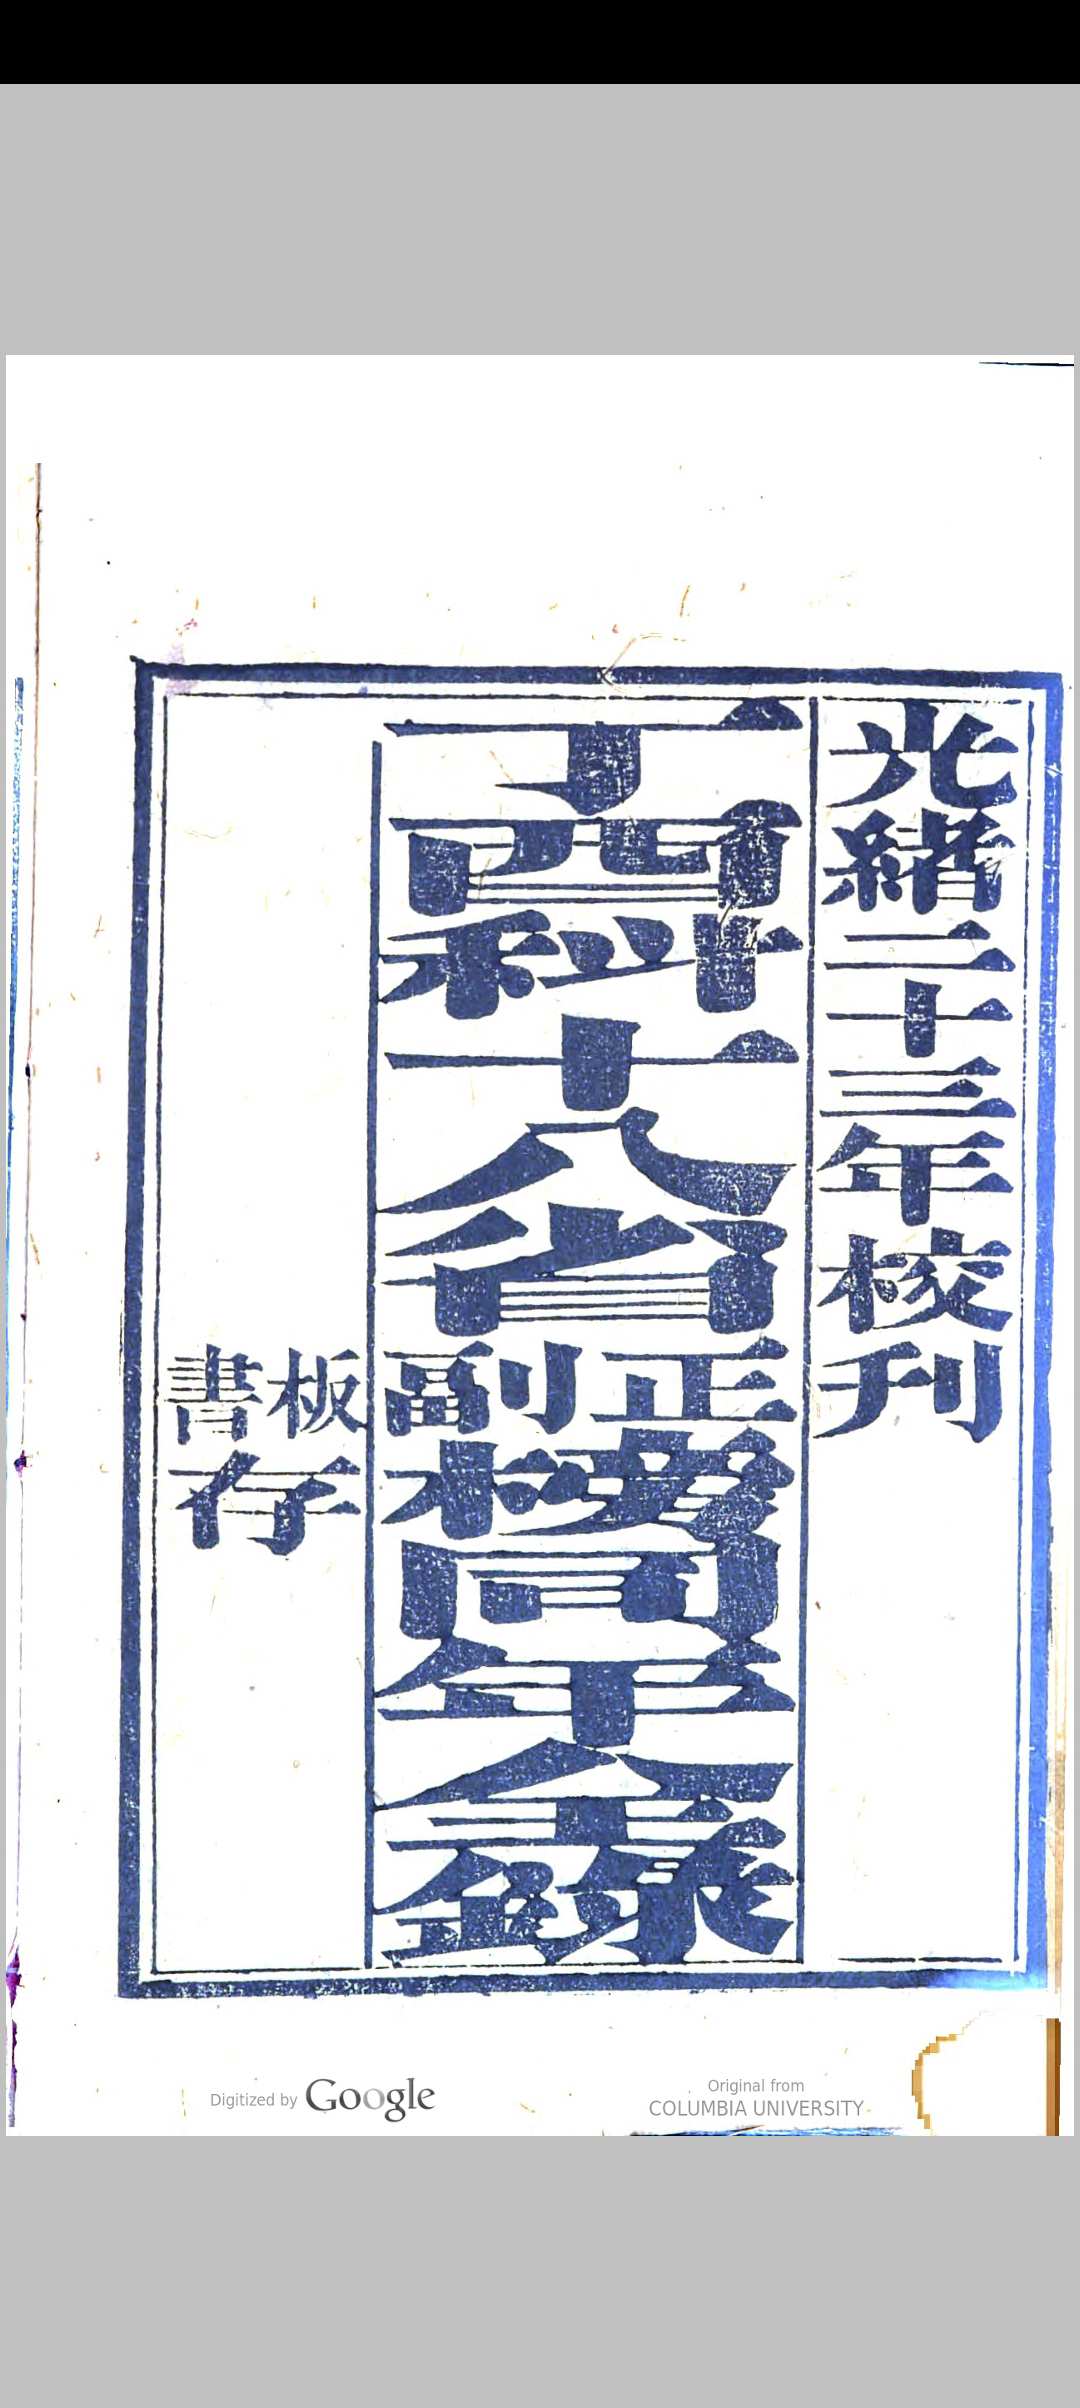 光緒二十三年校刊
丁酉科十八省正副榜同年全錄
板書存
Digitized by Google
Original from
COLUMBIA UNIVERSITY